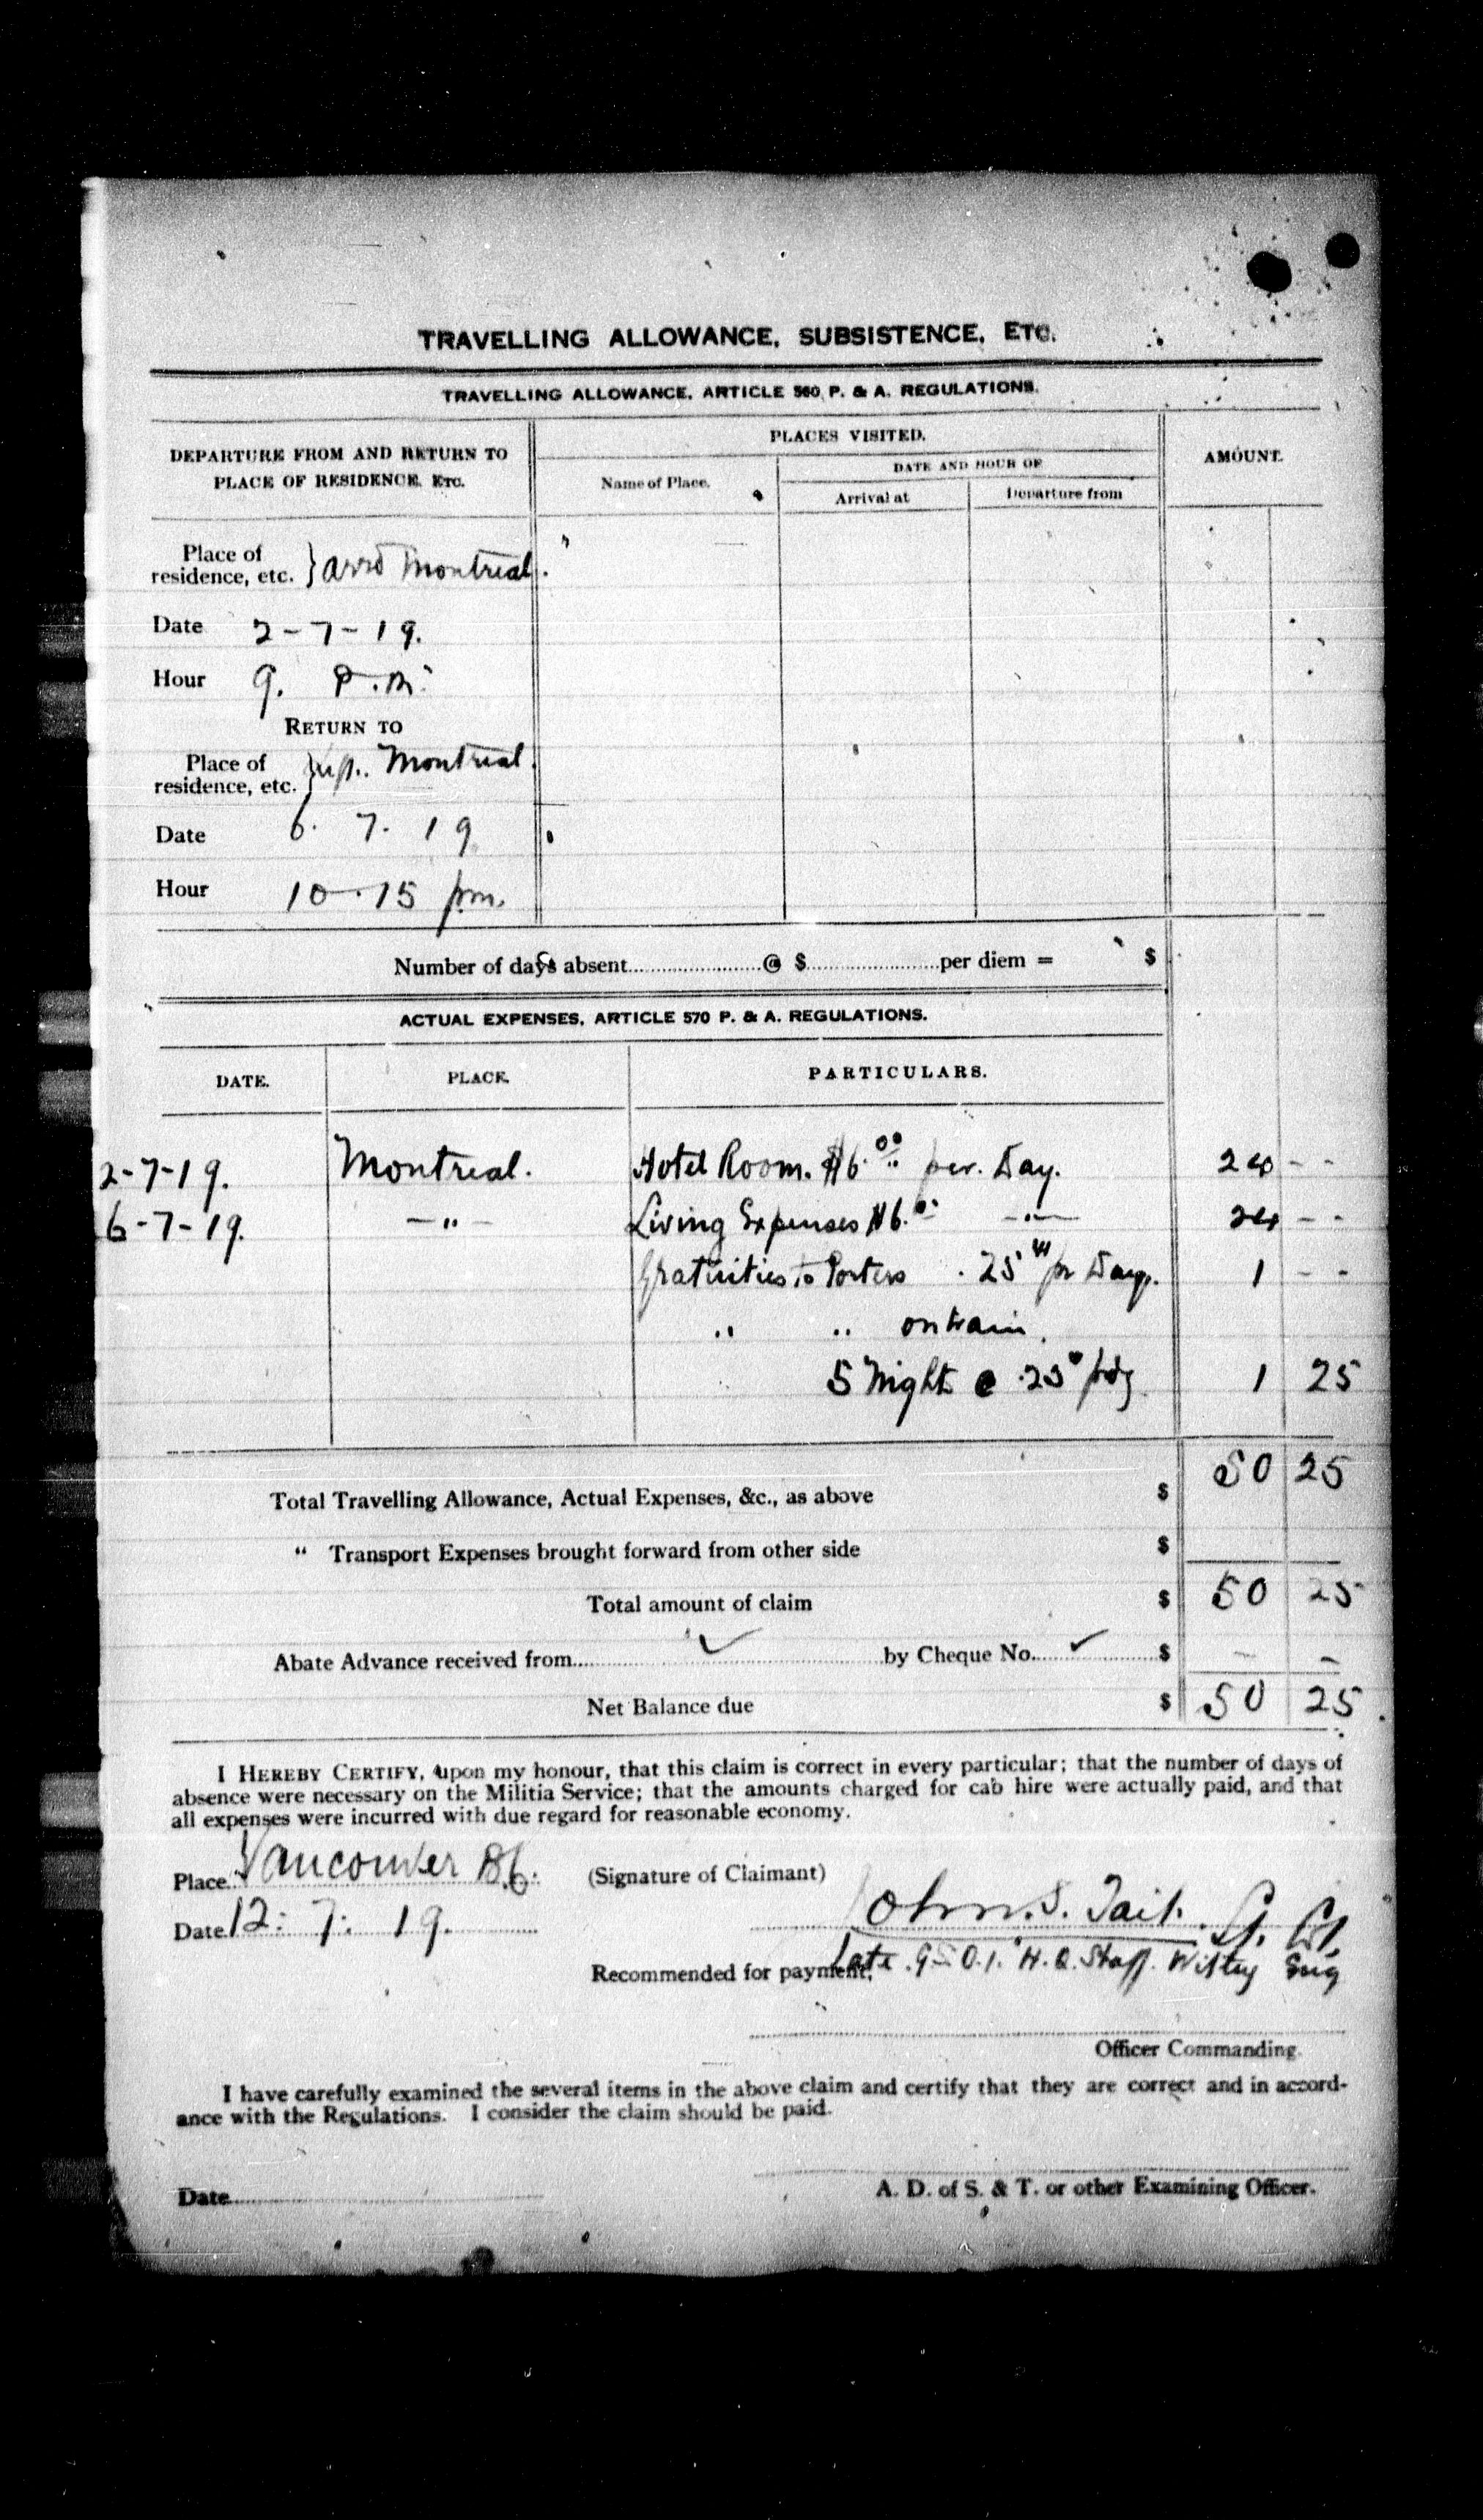 TRAVELLING ALLOWANCE, SUBSISTENCE, ETC.
TRAVELLING ALLOWANCE, ARTICLE 560, P. & A. REGULATIONS.
DEPARTURE FROM AND RETURN TO
PLACE OF RESIDENCE, ETC.
PLACES VISITED.
Name of Place.
DATE AND HOUR OF
Arrival at
Departure from
AMOUNT.
Place of
residence, etc. } Montreal.
Date 2-7-19.
Hour 9. P.M.
RETURN TO
Place of
residence, etc. } Montreal.
Date 6. 7. 19
Hour 10.15 pm.
Number of days absent @ $ per diem = $
ACTUAL EXPENSES, ARTICLE 570 P. & A. REGULATIONS.
DATE. PLACE. PARTICULARS.
2-7-19. Montreal. Hotel Room. $6.00 per. Day. 24 - -
6-7-19. - " - Living Expenses $6. - " - 24 - -
Gratuities to Porters .25 pr Day. 1 - -
" " on train.
5 Night @ .25 1 25
Total Travelling Allowance, Actual Expenses, &c., as above $ 50 25
" Transport Expenses brought forward from other side $
Total amount of claim $ 50 25
Abate Advance received from ✓ by Cheque No. ✓ $ - -
Net Balance due $ 50 25
I HEREBY CERTIFY, upon my honour, that this claim is correct in every particular; that the number of days of
absence were necessary on the Militia Service; that the amounts charged for cab hire were actually paid, and that
all expenses were incurred with due regard for reasonable economy.
Place Vancouver B.C. (Signature of Claimant)
John. S. Tait.
Date 12: 7: 19.
Recommended for payment, Late. G.S.O.1. H.Q. Staff. Witley Eng
Officer Commanding.
I have carefully examined the several items in the above claim and certify that they are correct and in accord-
ance with the Regulations. I consider the claim should be paid.
Date
A. D. of S. & T. or other Examining Officer.